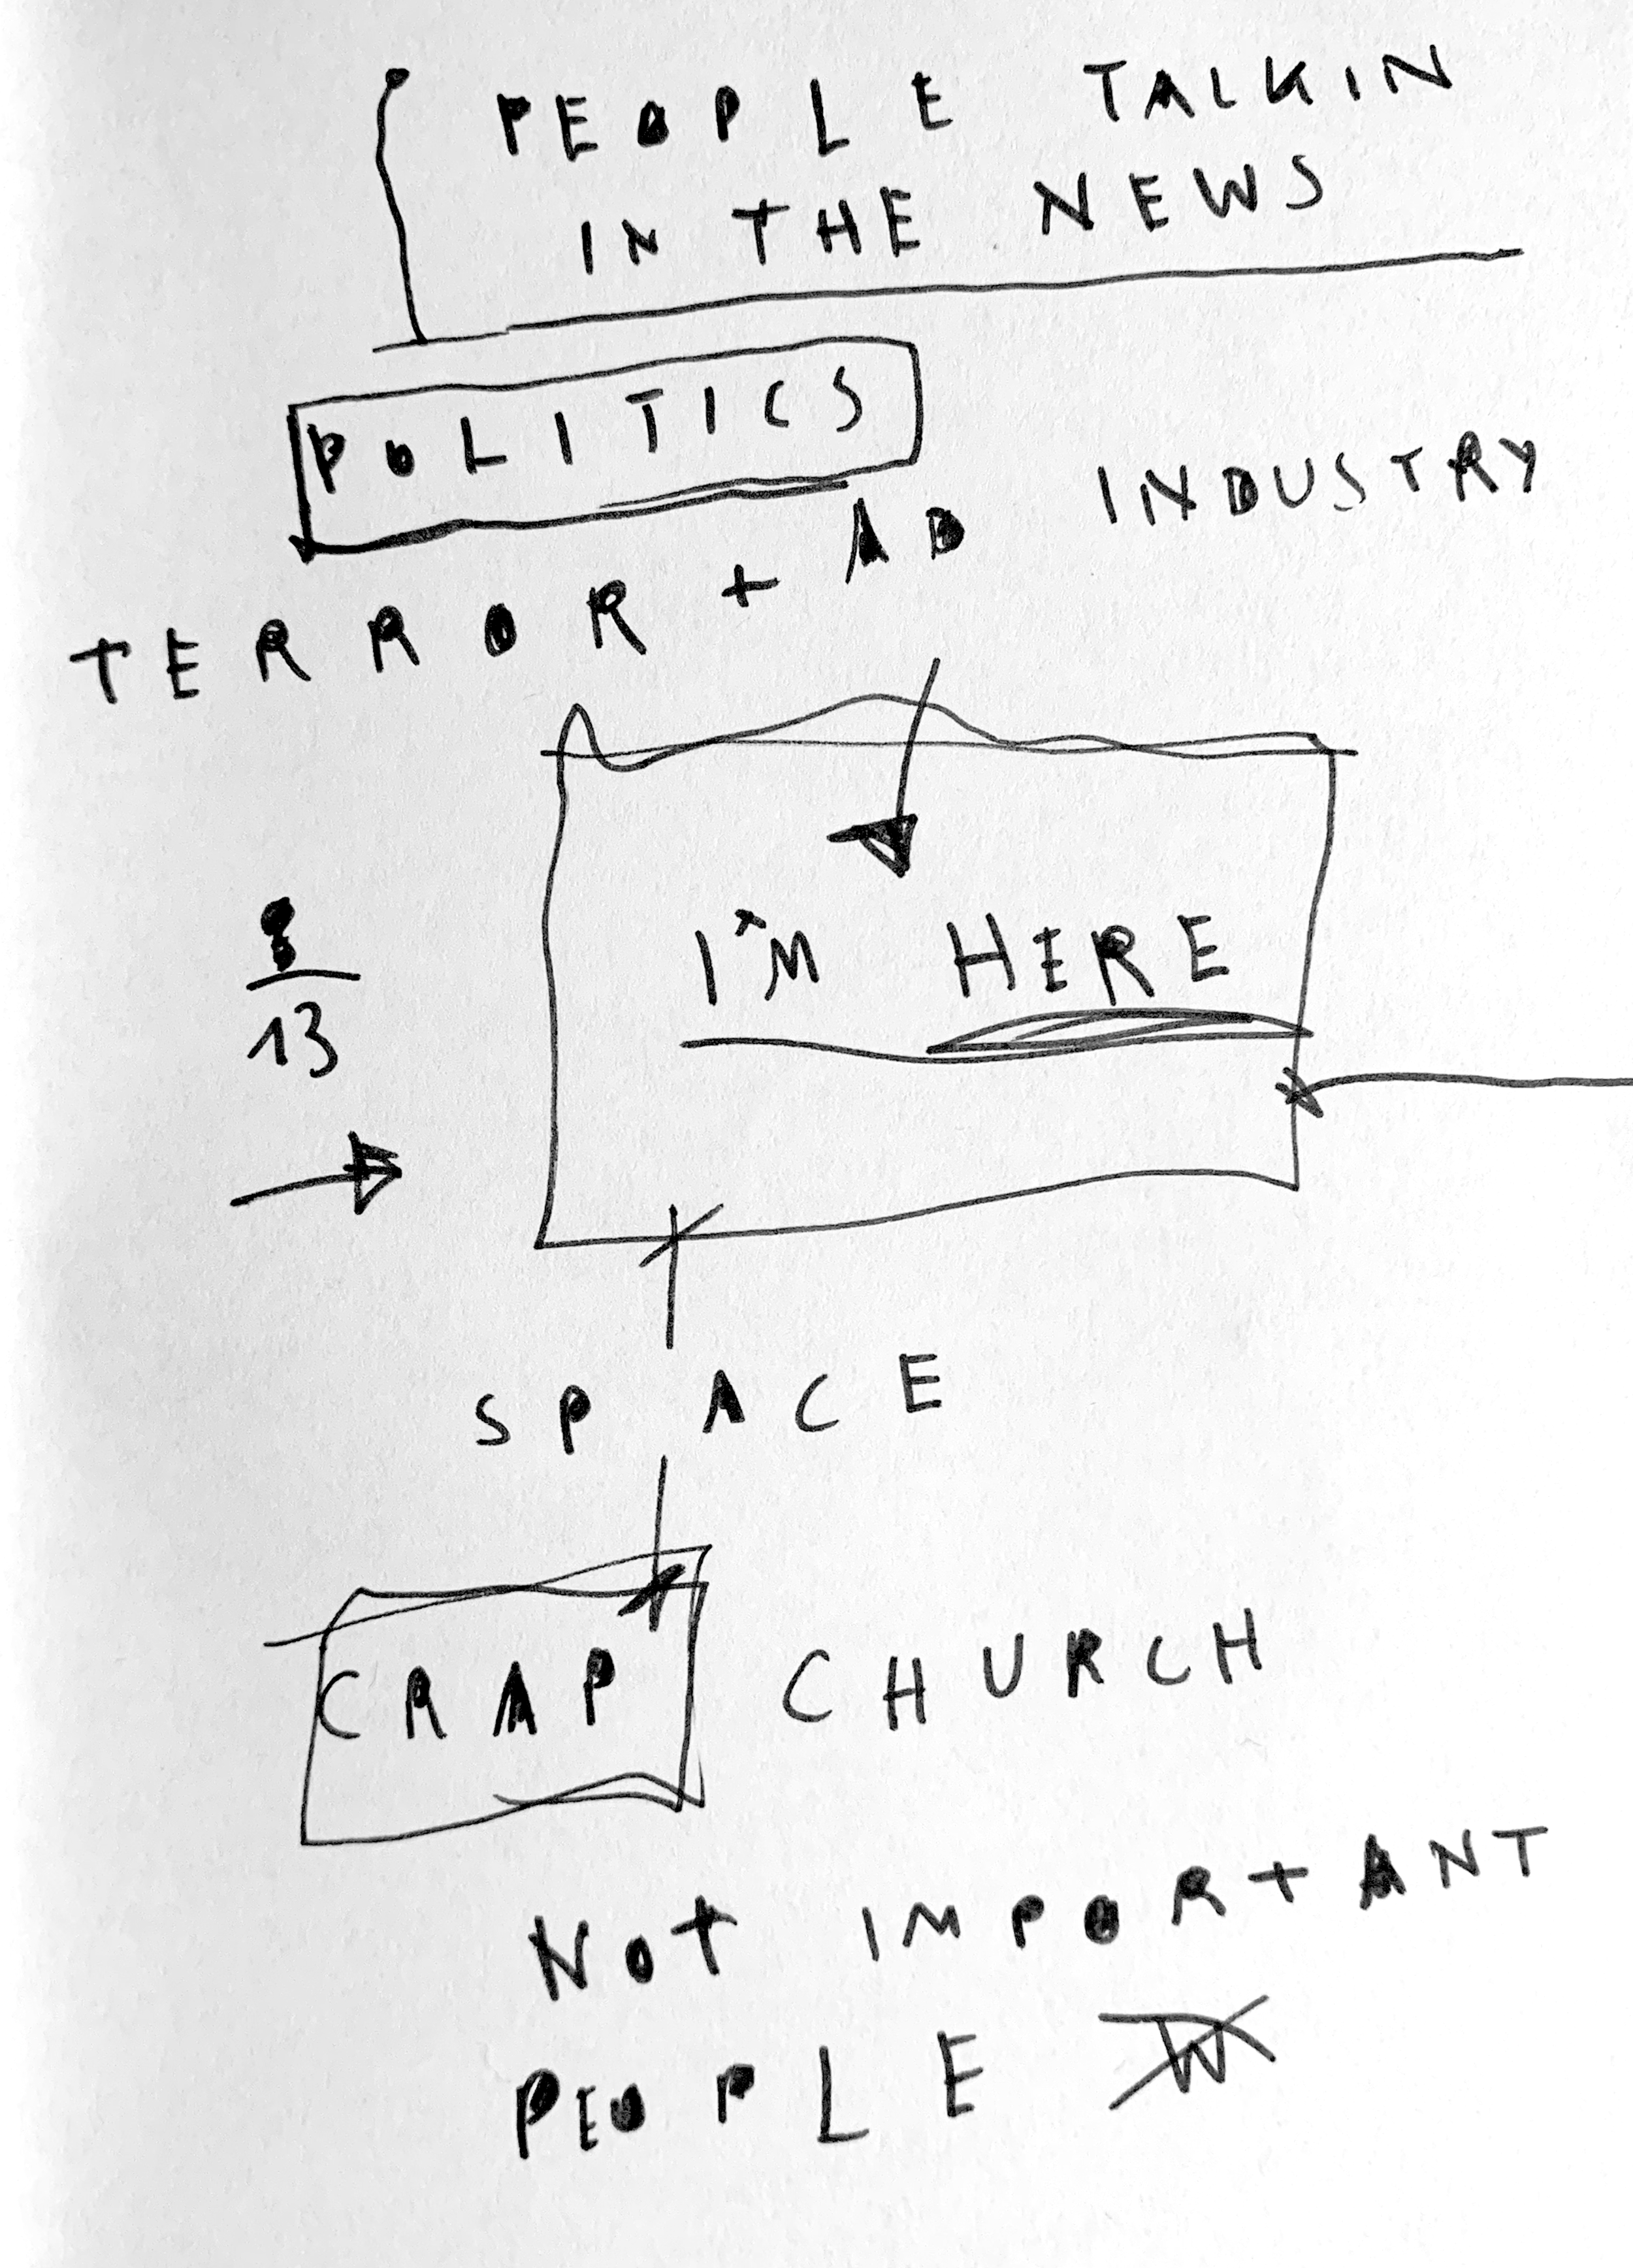 PEOPLE TALKIN
IN THE NEWS
POLITICS
TERROR + AD INDUSTRY
I'M HERE
8
13
SPACE
CRAP CHURCH
NOT IMPORTANT
PEOPLE